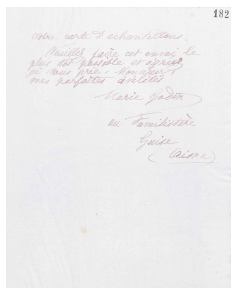 182
votre carte d'échantillons.
Veuillez faire cet envoi le
plus tôt possible et agréez
je vous prie, Monsieur,
mes parfaites civilités
Marie Godin
au Familistère
Guise
(Aisne)